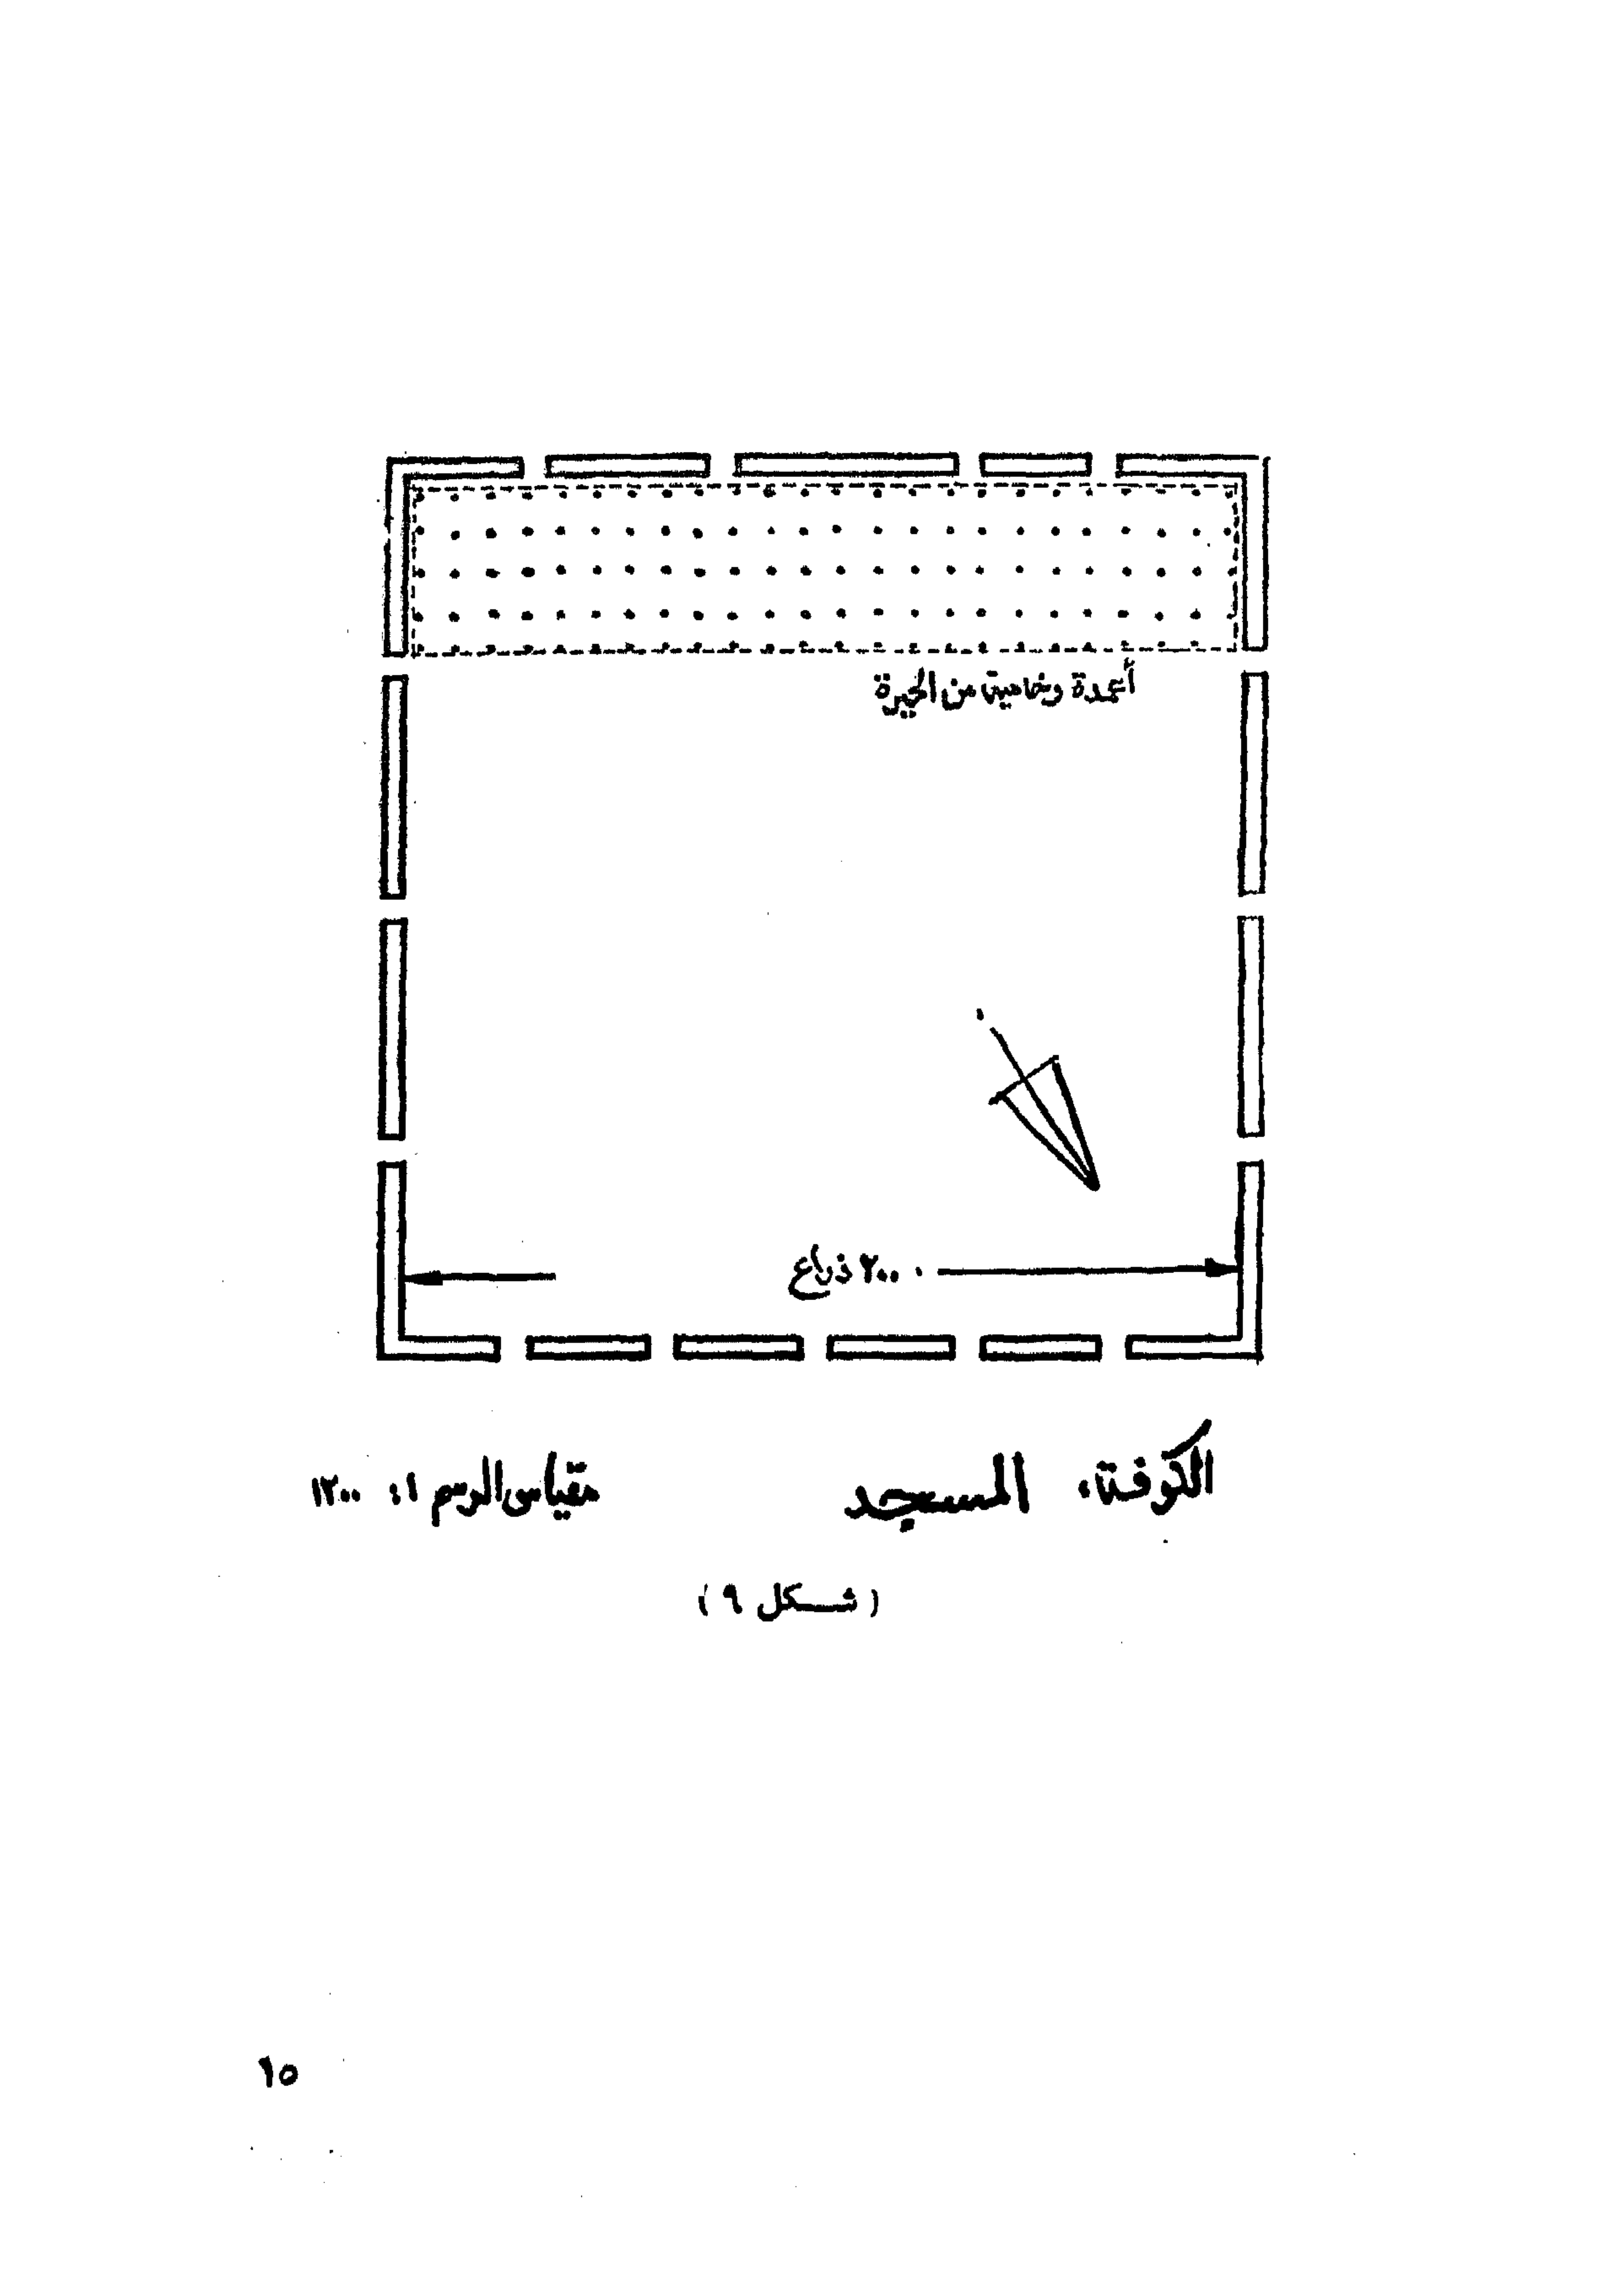 أعمدة رخامية من الحيرة
٢٠٠ ذراع
الكوفة، المسجد مقياس الرسم ١: ١٢٠٠
(شكل ٩)
١٥